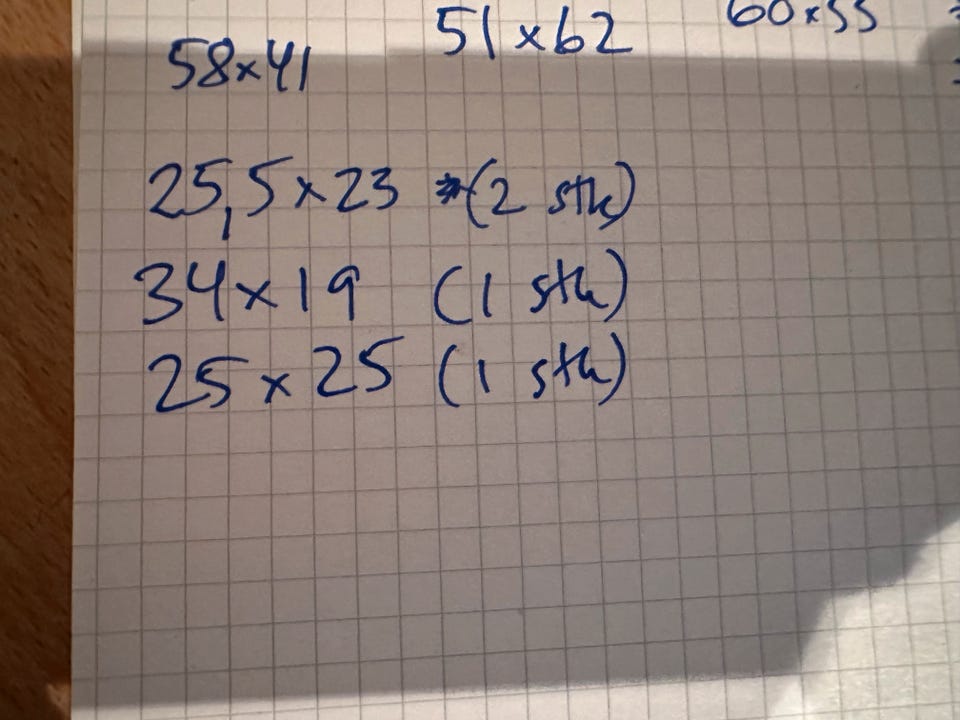 58x41 51x62 60x55
25,5x23 (2 stk)
34x19 (1 stk)
25x25 (1 stk)